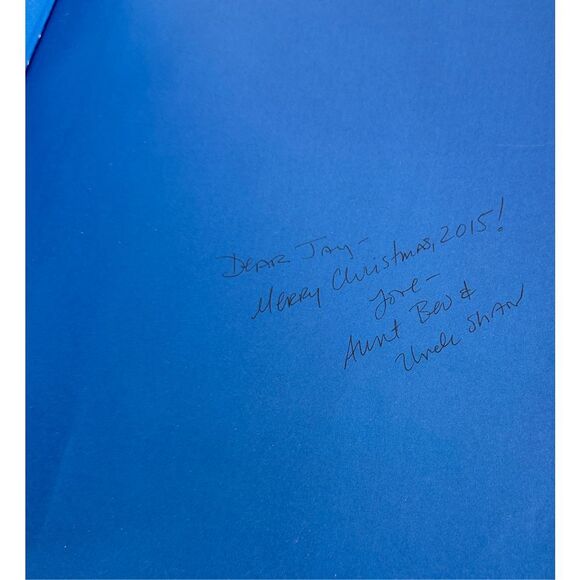 DEAR JAY-
MERRY Christmas, 2015!
Love-
Aunt Bev &
Uncle Shaw